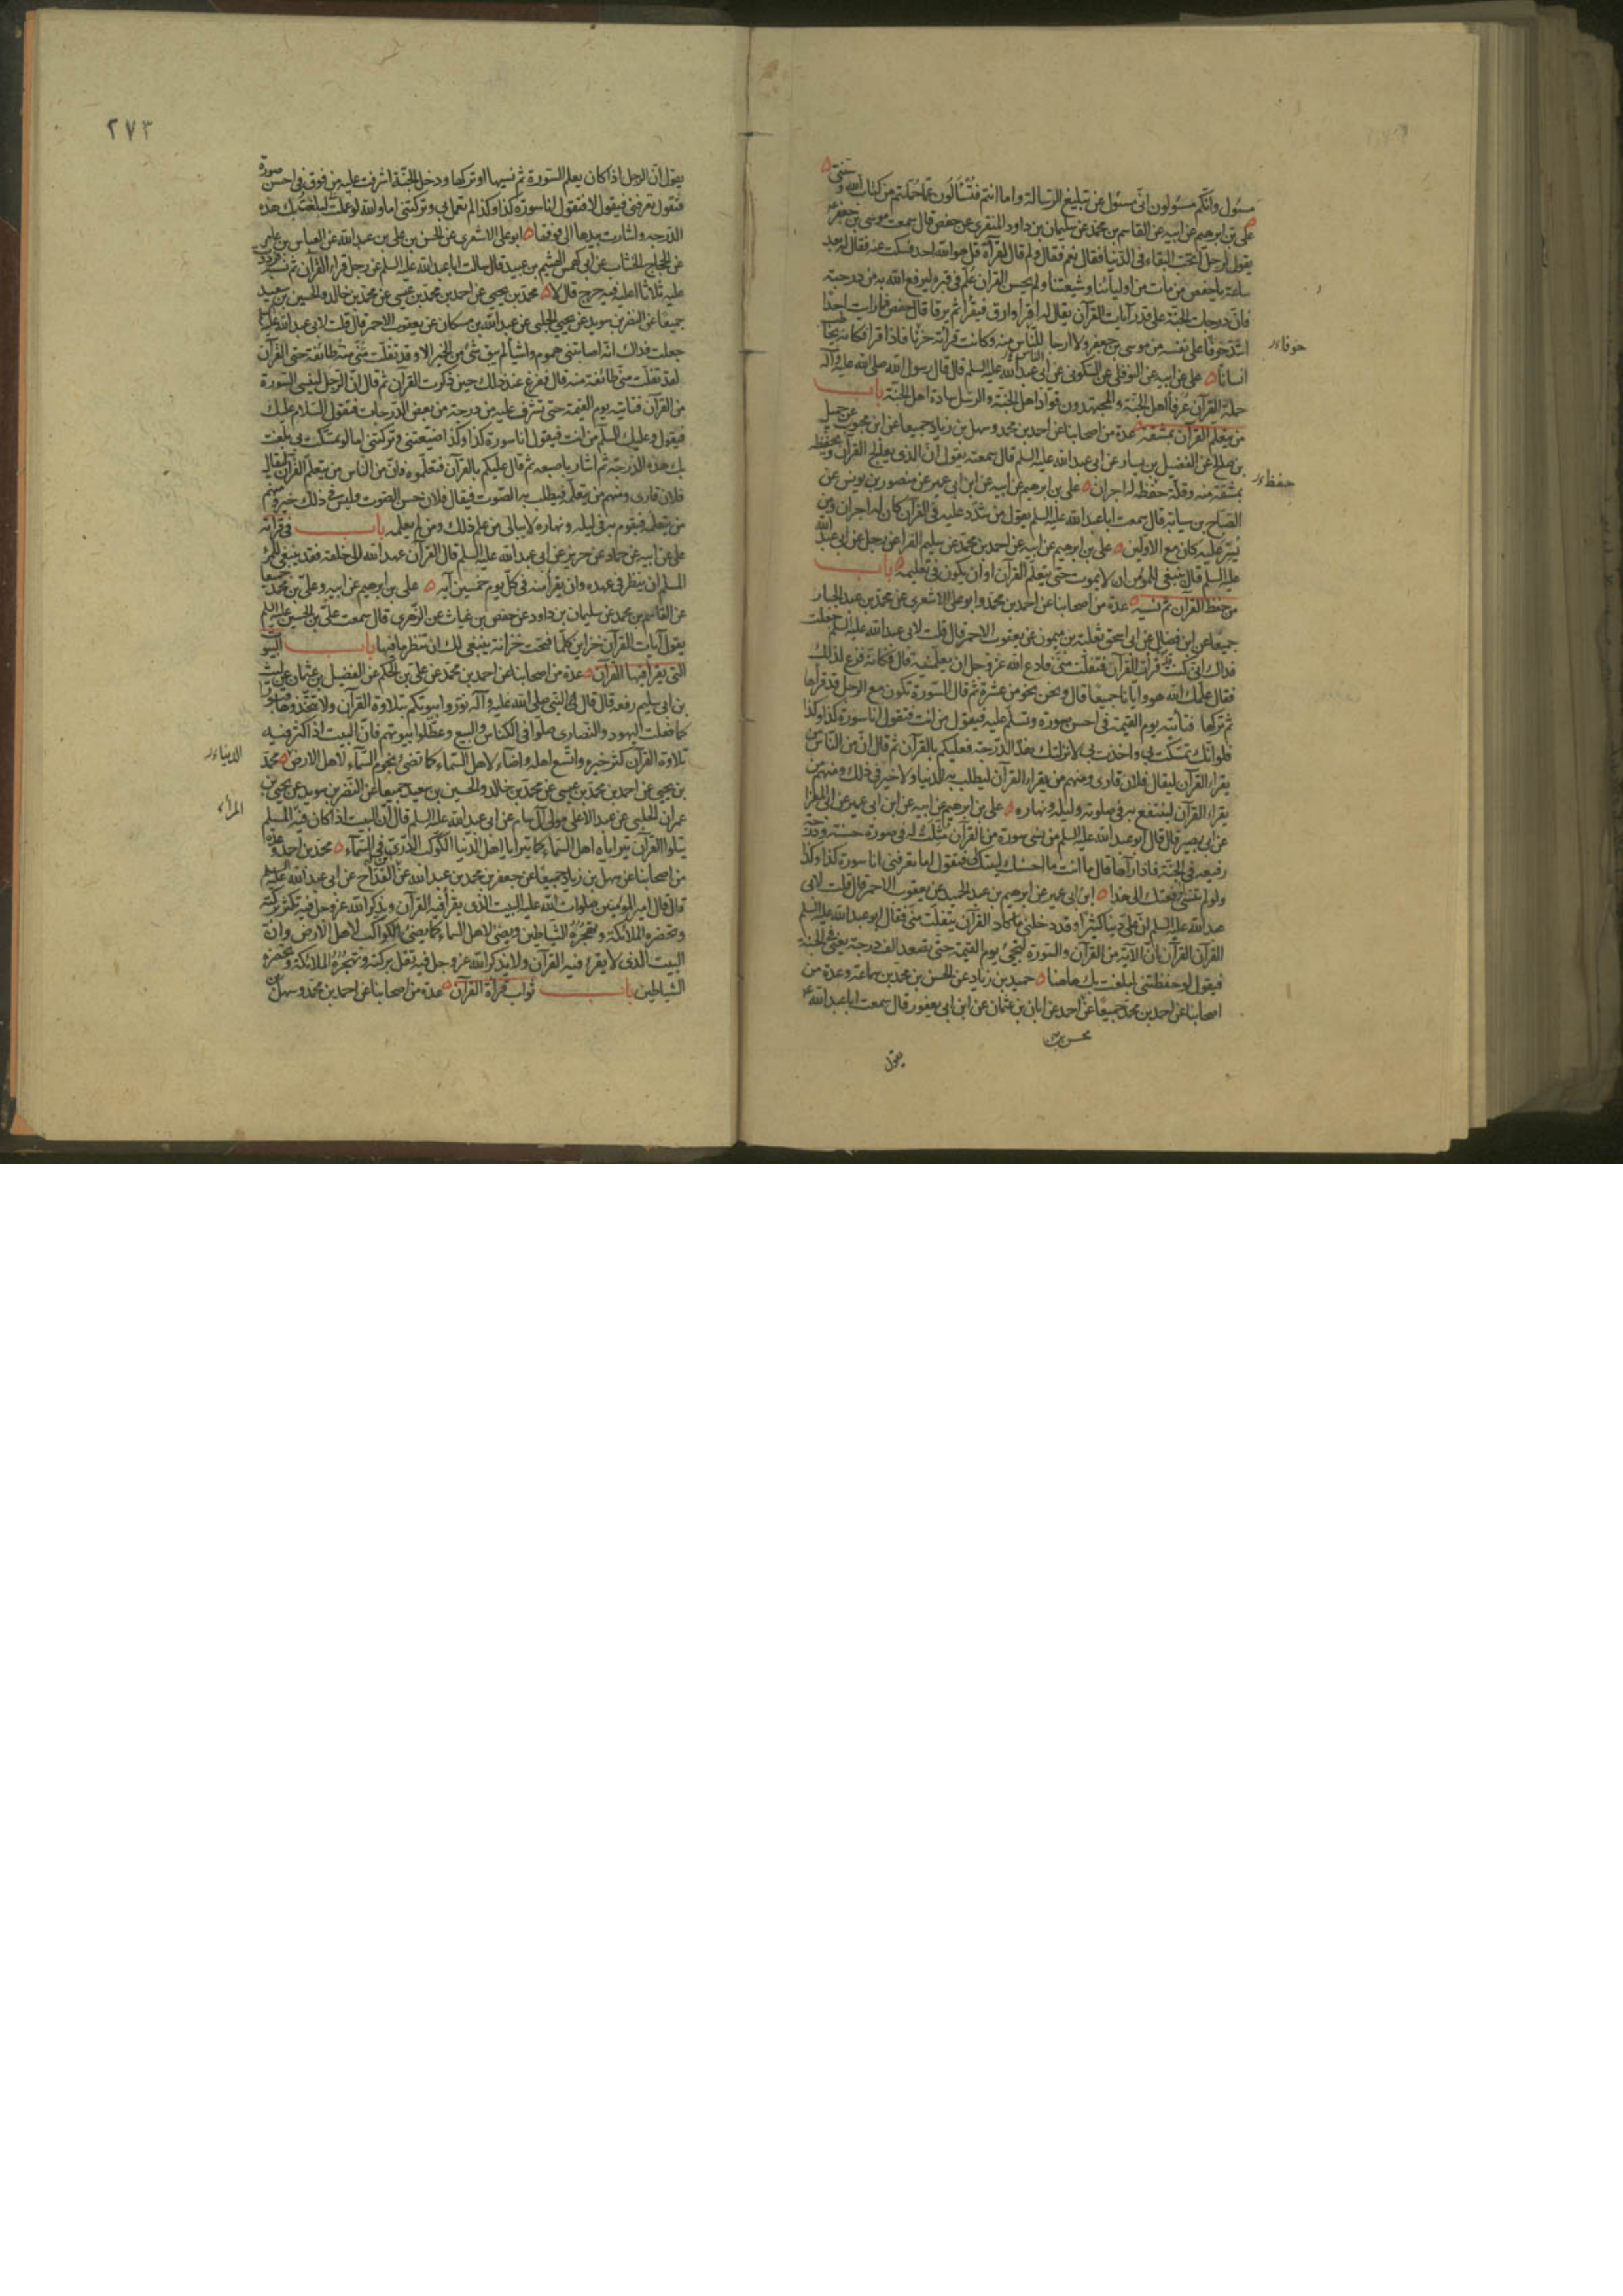 مسؤل وانكم مسؤلون انى مسؤل عن تبليغ الرسالة واما انتم فتسألون عما حملتم من كتاب الله وسنتى
على بن ابرهيم عن ابيه عن القاسم بن محمد عن سليمان بن داود المنقرى عن حفص قال سمعت موسى بن جعفر
يقول لرجل اتحب البقاء فى الدنيا فقال نعم فقال ولم قال لقرآءة قل هو الله احد فسكت عنه فقال له بعد
ساعة يا حفص من مات من اوليائنا وشيعتنا ولم يحسن القران علم فى قبره ليرفع الله به من درجته
فان درجات الجنة على قدر آيات القرآن يقال له اقرأ وارق فيقرأ ثم يرقا قال حفص فما رايت احدا
اشد خوفا على نفسه من موسى بن جعفر ولا ارجا للناس منه وكانت قرائته حزنا فاذا قرأ فكانه يخاطب
خوفا
انسانا على عن ابيه عن النوفلى عن السكونى عن ابى عبد الله عليه السلم قال قال رسول الله صلى الله عليه وآله
حملة القرآن عرفاء اهل الجنة والمجتهدون قواد اهل الجنة والرسل سادة اهل الجنة باب
من يتعلم القرآن بمشقة عدة من اصحابنا عن احمد بن محمد وسهل بن زياد جميعا عن ابن محبوب عن جميل
بن صالح عن الفضيل بن يسار عن ابى عبد الله عليه السلم قال سمعته يقول ان الذى يعالج القرآن ويحفظه
بمشقة منه وقلة حفظه له اجران على بن ابرهيم عن ابيه عن ابن ابى عمير عن منصور بن يونس عن
حفظ
الصباح بن سيابة قال سمعت ابا عبد الله عليه السلم يقول من شدد عليه فى القرآن كان له اجران ومن
يسر عليه كان مع الاولين على بن ابرهيم عن ابيه عن احمد بن محمد عن سليم الفرا عن رجل عن ابى عبد الله
عليه السلم قال ينبغى للمؤمن ان لا يموت حتى يتعلم القرآن او ان يكون فى تعليمه باب
من حفظ القرآن ثم نسيه عدة من اصحابنا عن احمد بن محمد وابو على الاشعرى عن محمد بن عبد الجبار
جميعا عن ابن فضال عن ابى اسحق ثعلبة بن ميمون عن يعقوب الاحمر قال قلت لابى عبد الله عليه السلم جعلت
فداك انى كنت قرأت القرآن فتفلت منى فادع الله عز وجل ان يعلمنيه قال فكانه فزع لذلك
فقال علمك الله هو وايانا جميعا قال ونحن نحو من عشرة ثم قال السورة تكون مع الرجل قد قرأها
ثم تركها فتأتيه يوم القيمة فى احسن صورة وتسلم عليه فيقول من انت فتقول انا سورة كذا وكذا
فلو انك تمسكت بى واخذت بى لانزلتك هذه الدرجة فعليكم بالقرآن ثم قال ان من الناس من
يقراء القرآن ليقال فلان قارى ومنهم من يقراء القرآن ليطلب به الدنيا ولا خير فى ذلك ومنهم من
يقراء القرآن لينتفع به فى صلوته وليله ونهاره على بن ابرهيم عن ابيه عن ابن ابى عمير عن ابى المغرا
عن ابى بصير قال قال ابو عبد الله عليه السلم من نسى سورة من القرآن مثلت له فى صورة حسنة ودرجة
رفيعة فى الجنة فاذا رآها قال ما انت ما احسنك ليتك لى فتقول اما تعرفنى انا سورة كذا وكذا
ولو لم تنسنى لرفعتك الى هذا ابن ابى عمير عن ابرهيم بن عبد الحميد عن يعقوب الاحمر قال قلت لابى
عبد الله عليه السلم ان على دينا كثيرا وقد دخلنى ما كاد القرآن يتفلت منى فقال ابو عبد الله عليه السلم
القرآن القرآن ان الآية من القرآن والسورة لتجئ يوم القيمة حتى تصعد الف درجة يعنى فى الجنة
فيقول لو حفظتنى لبلغت بك هاهنا حميد بن زياد عن الحسن بن محمد بن سماعة وعدة من
اصحابنا عن احمد بن محمد جميعا عن احمد عن ابان بن عثمان عن ابن ابى يعفور قال سمعت ابا عبد الله
يقول
٢٧٣
يقول ان الرجل اذا كان يعلم السورة ثم نسيها او تركها ودخل الجنة اشرفت عليه من فوق فى احسن صورة
فتقول تعرفنى فيقول لا فتقول انا سورة كذا وكذا لم تعمل بى وتركتنى اما والله لو عملت لبلغتك هذه
الدرجه واشارت بيدها الى فوقها ابو على الاشعرى عن الحسن بن على بن عبد الله عن العباس بن عامر
عن الحجاج الخشاب عن ابى كهمس الهيثم بن عبيد قال سالت ابا عبد الله عليه السلم عن رجل قراء القرآن ثم نسيه فرددت
عليه ثلاثا اعليه فيه حرج قال لا محمد بن يحيى عن احمد بن محمد بن عيسى عن محمد بن خالد والحسين بن سعيد
جميعا عن النضر بن سويد عن يحيى الحلبى عن عبد الله بن مسكان عن يعقوب الاحمر قال قلت لابى عبد الله عليه السلم
جعلت فداك انه اصابتنى هموم واشيأ لم يبق شئ من الخير الا وقد تفلت منى منه طائفة حتى القرآن
لقد تفلت منى طائفة منه قال ففزع عند ذلك حين ذكرت القرآن ثم قال ان الرجل لينسى السورة
من القرآن فتاتيه يوم القيمة حتى تشرف عليه من درجة من بعض الدرجات فتقول السلام عليك
فيقول وعليك السلام من انت فيقول انا سورة كذا وكذا ضيعتنى وتركتنى اما لو تمسكت بى بلغت
بك هذه الدرجة ثم اشار باصبعه ثم قال عليكم بالقرآن فتعلموه فان من الناس من يتعلم القرآن ليقال
فلان قارى ومنهم من يتعلمه فيطلب به الصوت فيقال فلان حسن الصوت وليس فى ذلك خير ومنهم
من يتعلمه فيقوم به فى ليله ونهاره لا يبالى من علم ذلك ومن لم يعلمه باب فى قرآئته
على عن ابيه عن حماد عن حريز عن ابى عبد الله عليه السلم قال القرآن عهد الله الى خلقه فقد ينبغى للمرء
المسلم ان ينظر فى عهده وان يقرأ منه فى كل يوم خمسين آية على بن ابرهيم عن ابيه وعلى بن محمد جميعا
عن القاسم بن محمد عن سليمان بن داود عن حفص بن غياث عن الزهرى قال سمعت على بن الحسين عليه السلم
يقول آيات القرآن خزاين كلما فتحت خزانة ينبغى لك ان تنظر ما فيها باب البيوت
التى يقرأ فيها القرآن عدة من اصحابنا عن احمد بن محمد عن على بن الحكم عن الفضيل بن عثمان عن ليث
بن ابى سليم رفعه قال قال النبى صلى الله عليه وآله نوروا بيوتكم بتلاوة القرآن ولا تتخذوها قبورا
كما فعلت اليهود والنصارى صلوا فى الكنائس والبيع وعطلوا بيوتهم فان البيت اذا كثر فيه
تلاوة القرآن كثر خيره واتسع اهله واضاء لاهل السماء كما تضئ نجوم السماء لاهل الارض محمد
الدنيا
بن يحيى عن احمد بن محمد بن عيسى عن محمد بن خالد والحسين بن سعيد جميعا عن النضر بن سويد عن يحيى بن
عمران الحلبى عن عبد الاعلى مولى آل سام عن ابى عبد الله عليه السلم قال ان البيت اذا كان فيه المسلم
المرأ
يتلوا القرآن يتراياه اهل السماء كما يترايا اهل الدنيا الكوكب الدرى فى السمآء محمد بن احمد وعدة
من اصحابنا عن سهل بن زياد جميعا عن جعفر بن محمد بن عبد الله عن القداح عن ابى عبد الله عليه السلم
قال قال امير المؤمنين صلوات الله عليه البيت الذى يقرأ فيه القرآن ويذكر الله عز وجل فيه تكثر بركته
وتحضره الملائكة وتهجره الشياطين ويضئ لاهل السماء كما يضئ الكواكب لاهل الارض وان
البيت الذى لا يقرء فيه القرآن ولا يذكر الله عز وجل فيه تقل بركته وتهجره الملائكة وتحضره
الشياطين باب ثواب قرآءة القرآن عدة من اصحابنا عن احمد بن محمد وسهل بن